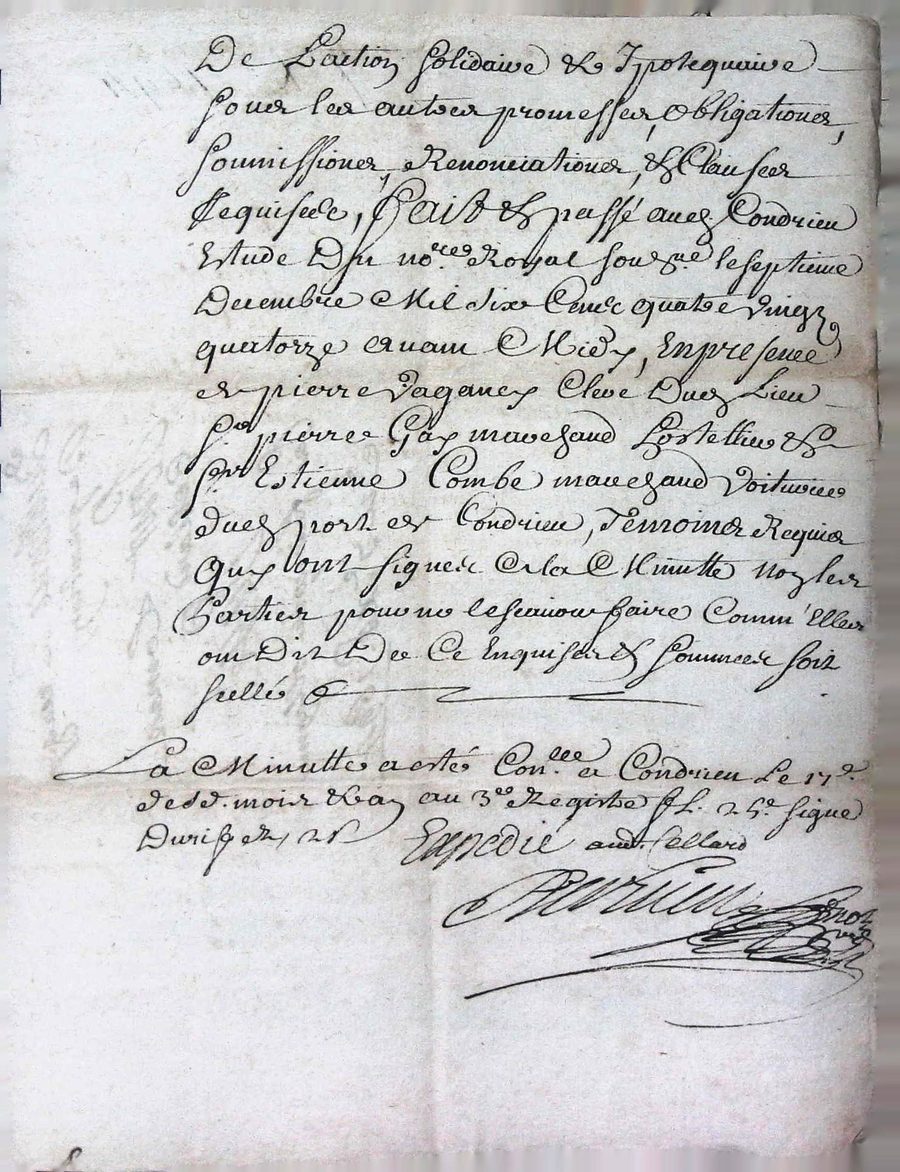 De Laction solidaire & Ypotequaire
sous les autres promesses, obligations,
soumissions, Renonciations, & Clauses
Requises, fait & passé aud. Condrieu
Estude Du no.re Royal sous.né le septieme
Decembre Mil Six Cens quatre vingz
quatorze avant Midy, En presence
de pierre Clerc Dud. Lieu
Sr. pierre Gay marchand hostellier &
sr. Estienne Combe marchand voiturier
dud. port de Condrieu, Temoins Requis
Quy ont signés a la Minutte non les
Parties pour ne le scavoir faire Comm'Elles
ont Dit De Ce Enquises & sommees soit
scellé
La Minutte a esté Con.llée a Condrieu Le 17.e
desd. mois & an au 3.e Registre fl. 25.e signé
Expedié aud. Cellard